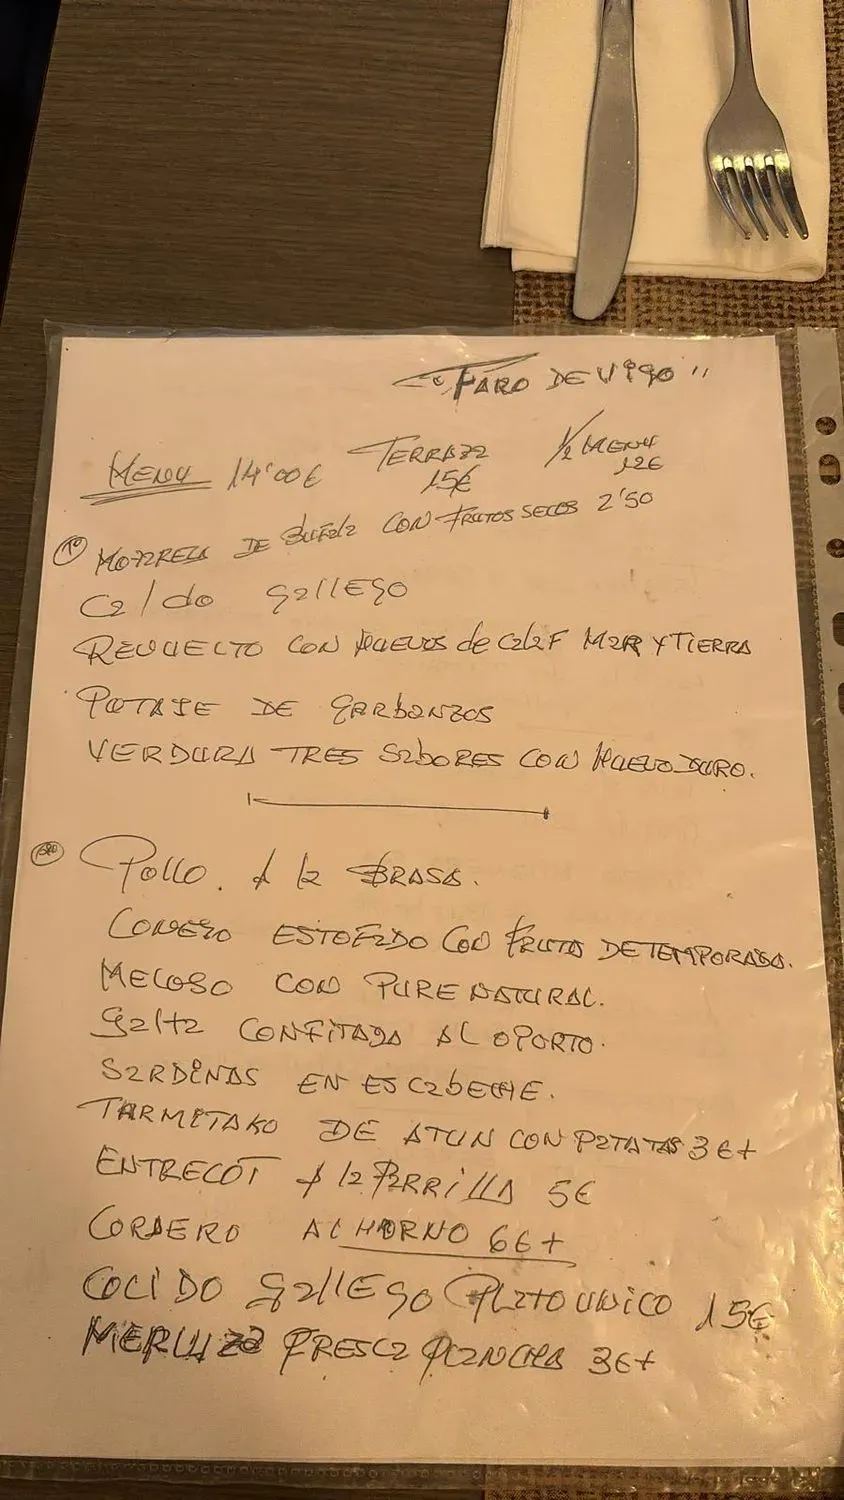 "FARO DE VIGO"
MENU 14'00€ TERRAZA 15€ 1/2 MENU 12€
1º MOZZRELA DE BUFALA CON FRUTOS SECOS 2'50
CALDO GALLEGO
REVUELTO CON HUEVOS de CALF MAR Y TIERRA
POTAJE DE GARBANZOS
VERDURA TRES SABORES CON HUEVO DURO.
POLLO. A la BRASA.
CONEJO ESTOFADO CON FRUTA DE TEMPORADA.
MELOSO CON PURE NATURAL.
GALTA CONFITADA AL OPORTO.
SARDINAS EN ESCABECHE.
TARMITAKO DE ATUN CON PATATAS 3€+
ENTRECOT A la PARRILLA 5€
CORDERO AL HORNO 6€+
COCIDO GALLEGO PLATO UNICO 15€
MERLUZA FRESCA PLANCHA 3€+